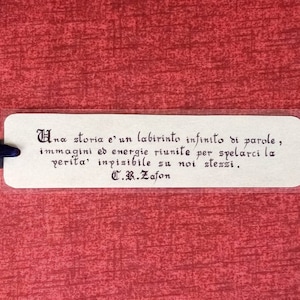 Una storia e' un labirinto infinito di parole,
immagini ed energie riunite per svelarci la
verita' invisibile su noi stessi.
C.R.Zafon